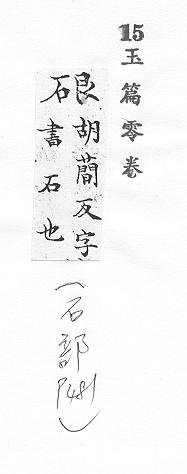 15 玉篇零卷
硍
胡簡反字
書石也
（石部 P481）